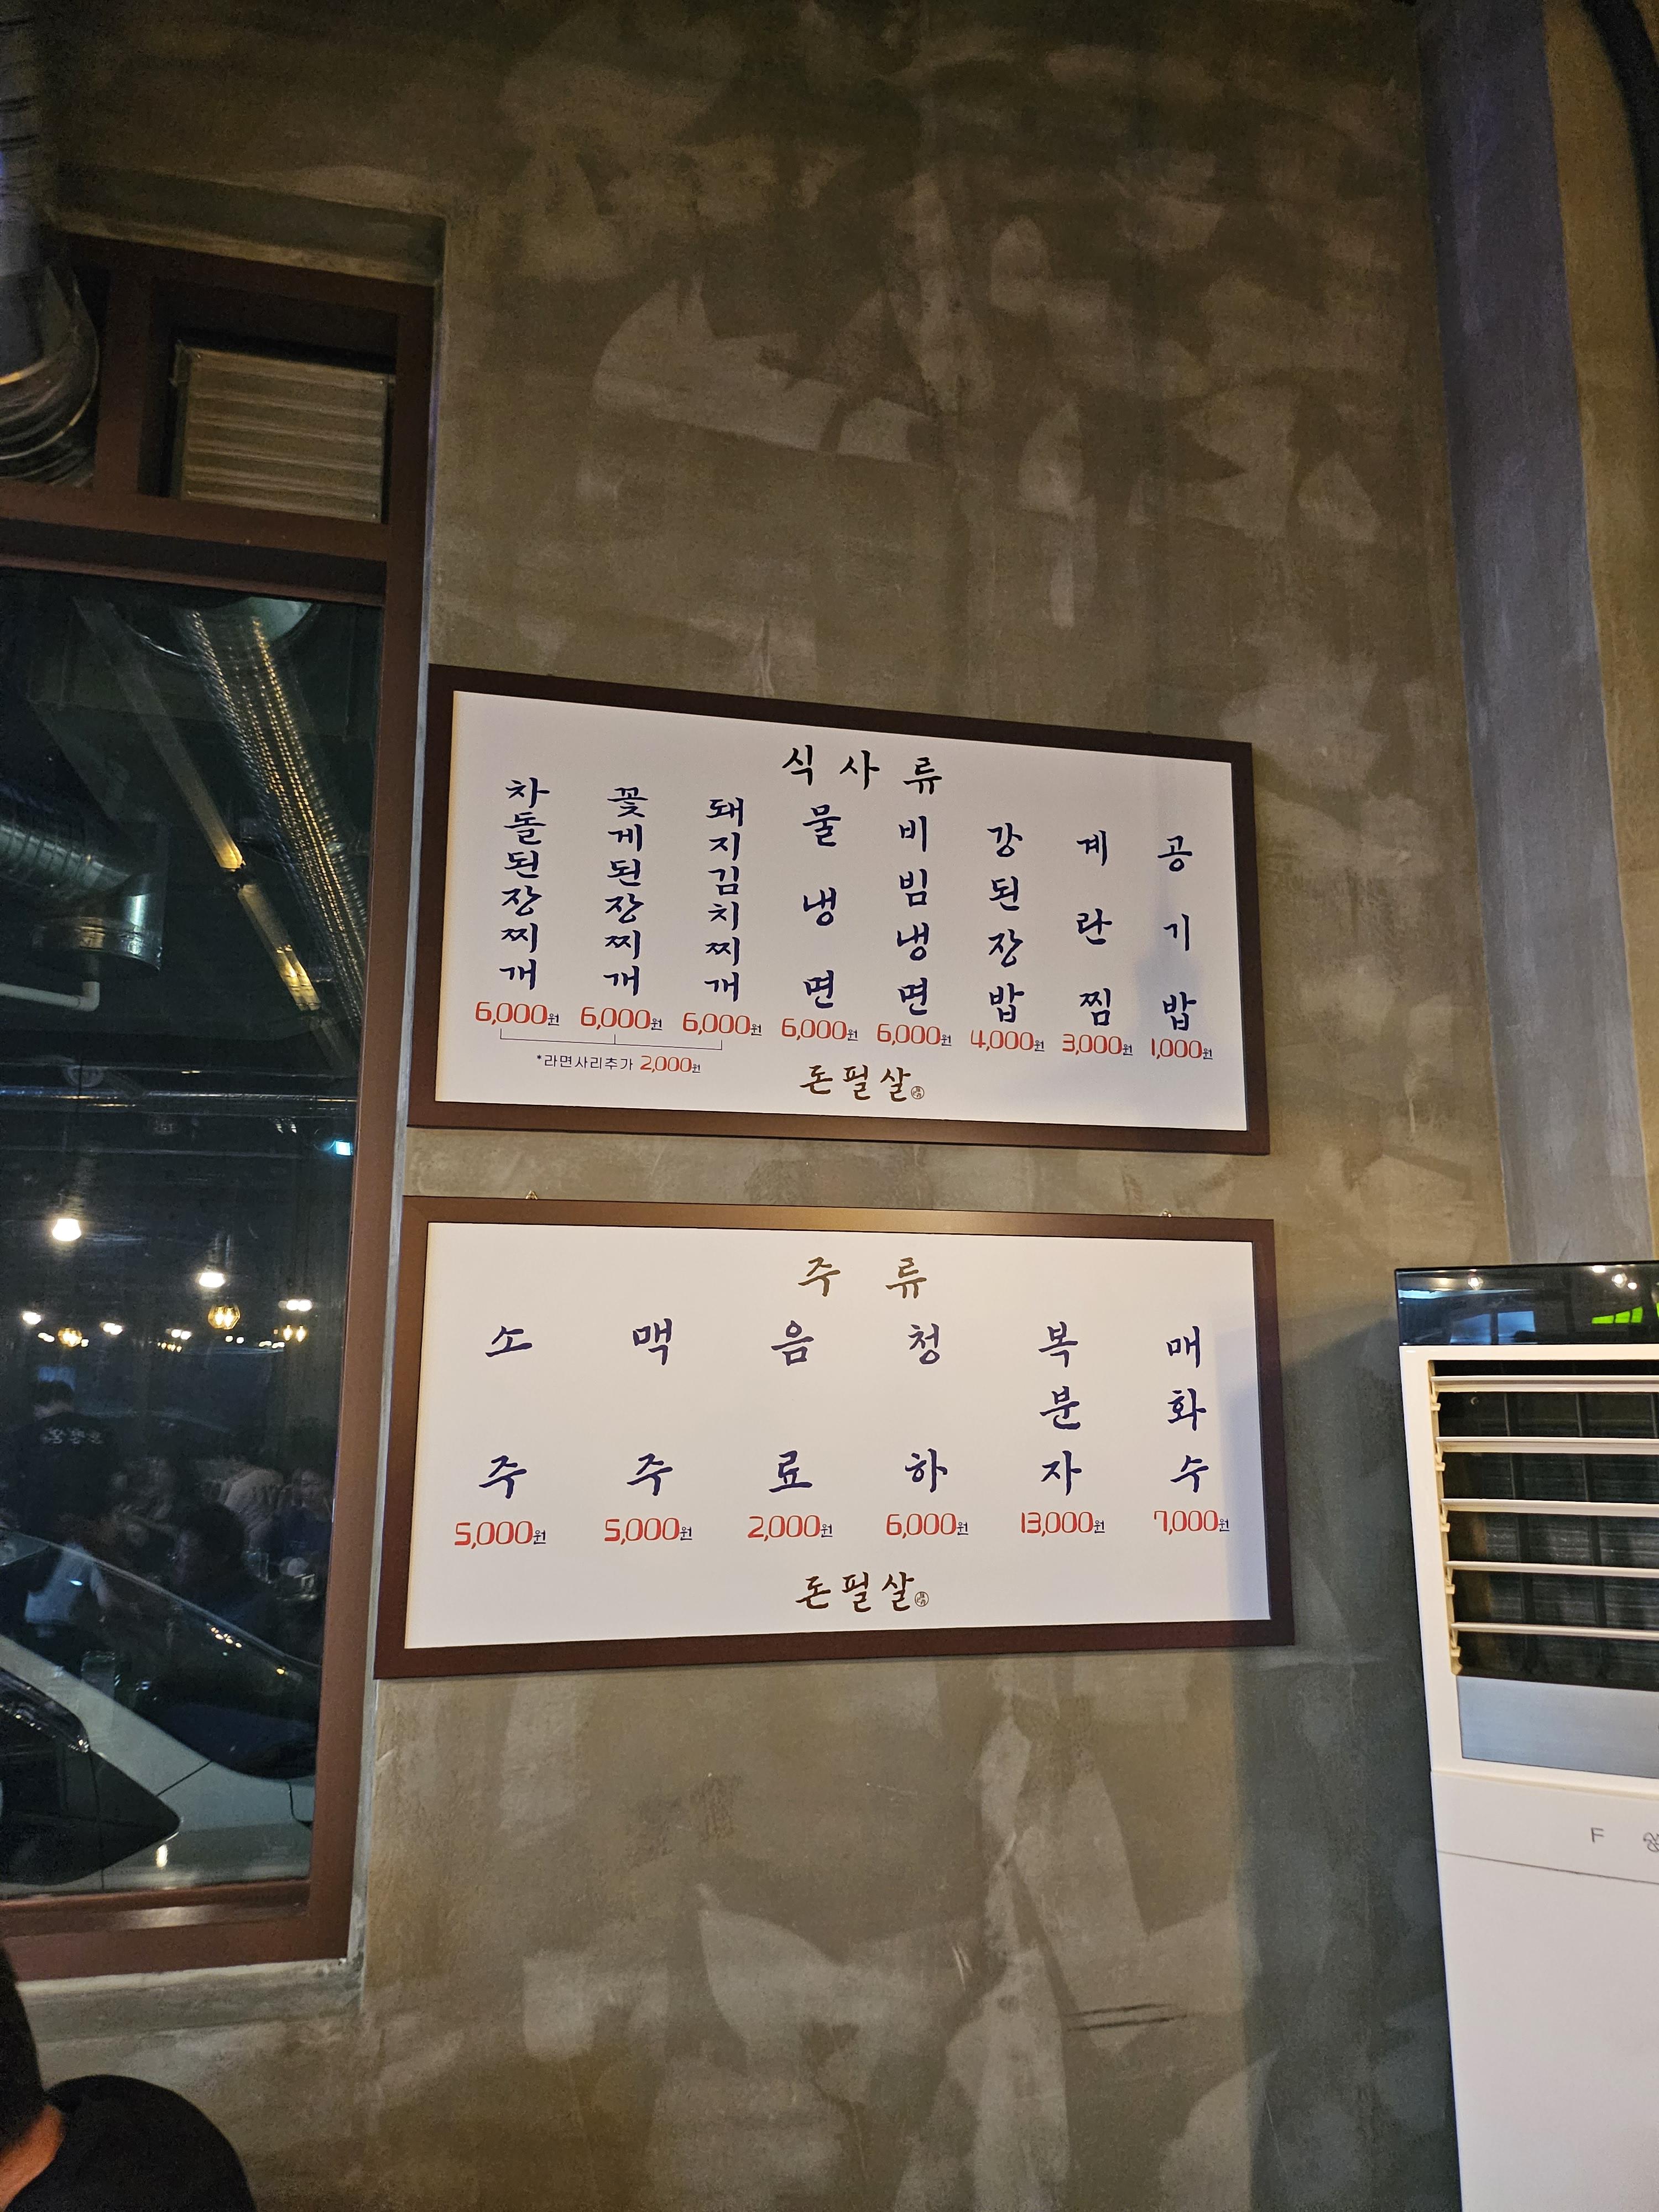 식사류
차돌된장찌개 6,000원
꽃게된장찌개 6,000원
돼지김치찌개 6,000원
*라면사리추가 2,000원
물냉면 6,000원
비빔냉면 6,000원
강된장밥 4,000원
계란찜 3,000원
공기밥 1,000원
돈필살
주류
소주 5,000원
맥주 5,000원
음료 2,000원
청하 6,000원
복분자 13,000원
매화수 7,000원
돈필살
F